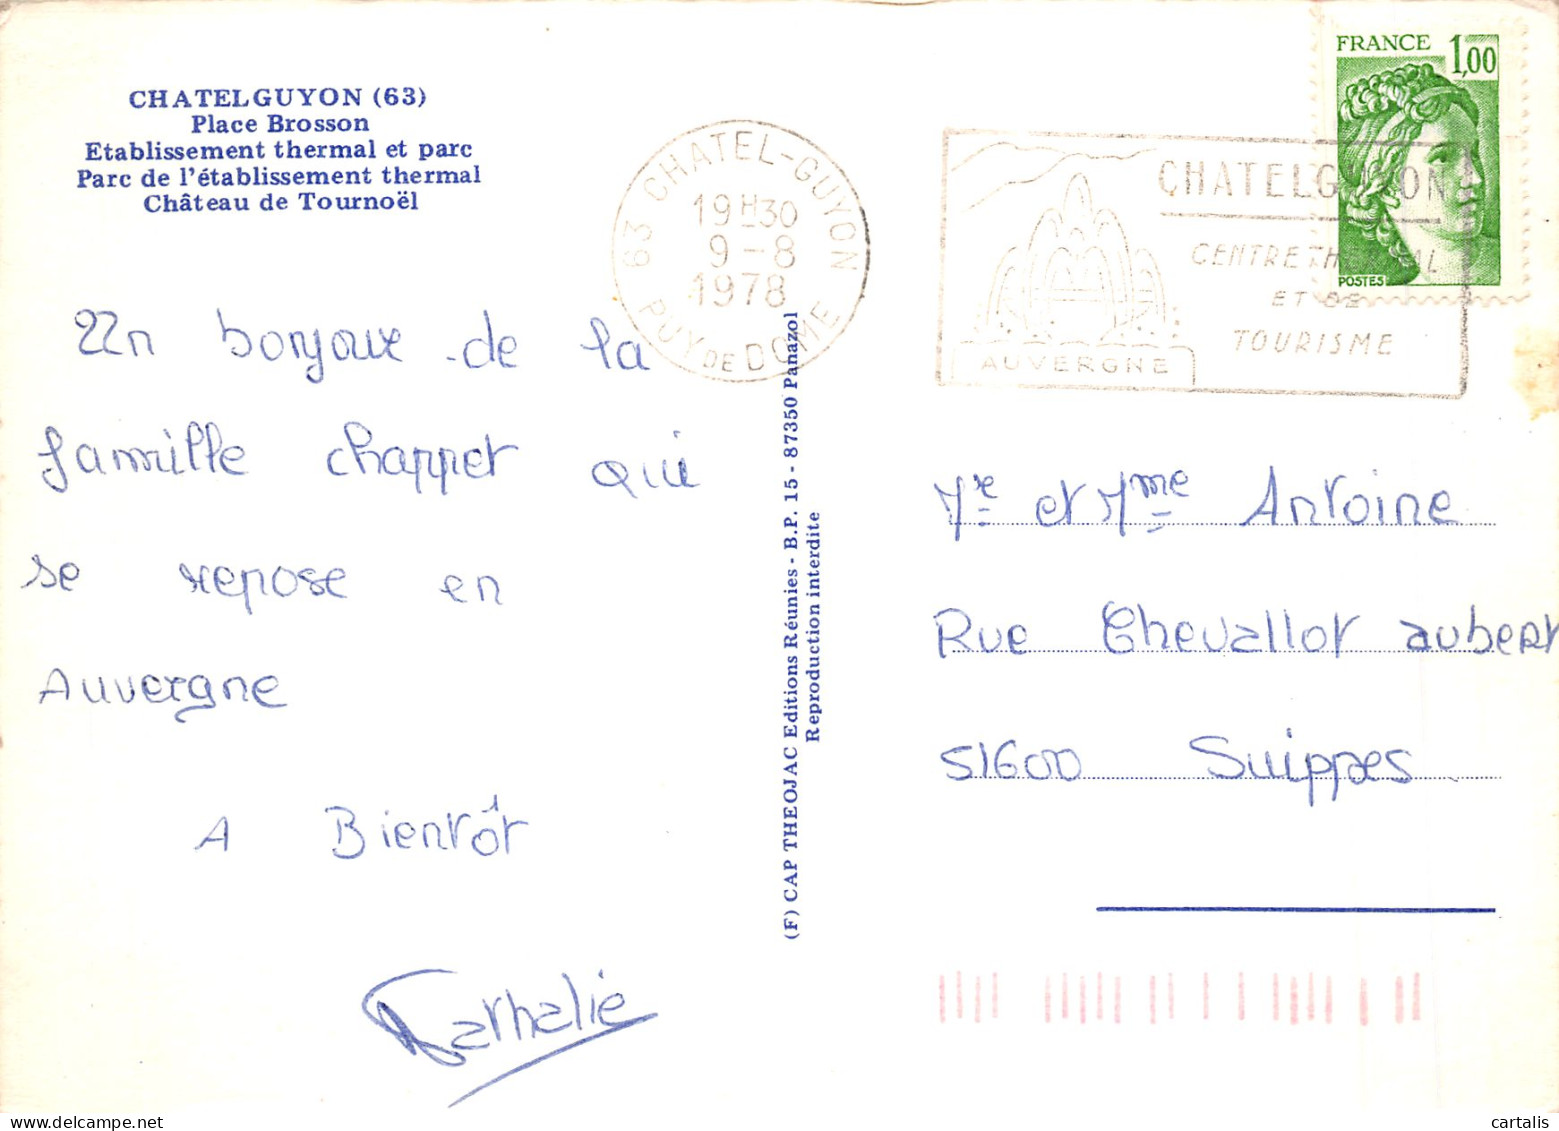 CHATELGUYON (63)
Place Brosson
Etablissement thermal et parc
Parc de l'établissement thermal
Château de Tournoël
63 CHATEL-GUYON
19H30
9-8
1978
PUY DE DOME
CHATELGUYON
CENTRE THERMAL
ET DE
TOURISME
AUVERGNE
FRANCE 1,00
POSTES
Un bonjour de la
famille chappet qui
se repose en
Auvergne
A Bientôt
Nathalie
(F) CAP THEOJAC Editions Réunies - B.P. 15 - 87350 Panazol
Reproduction interdite
Mr et Mme Antoine
Rue Chevallot aubert
51600 Suippes
cartalis